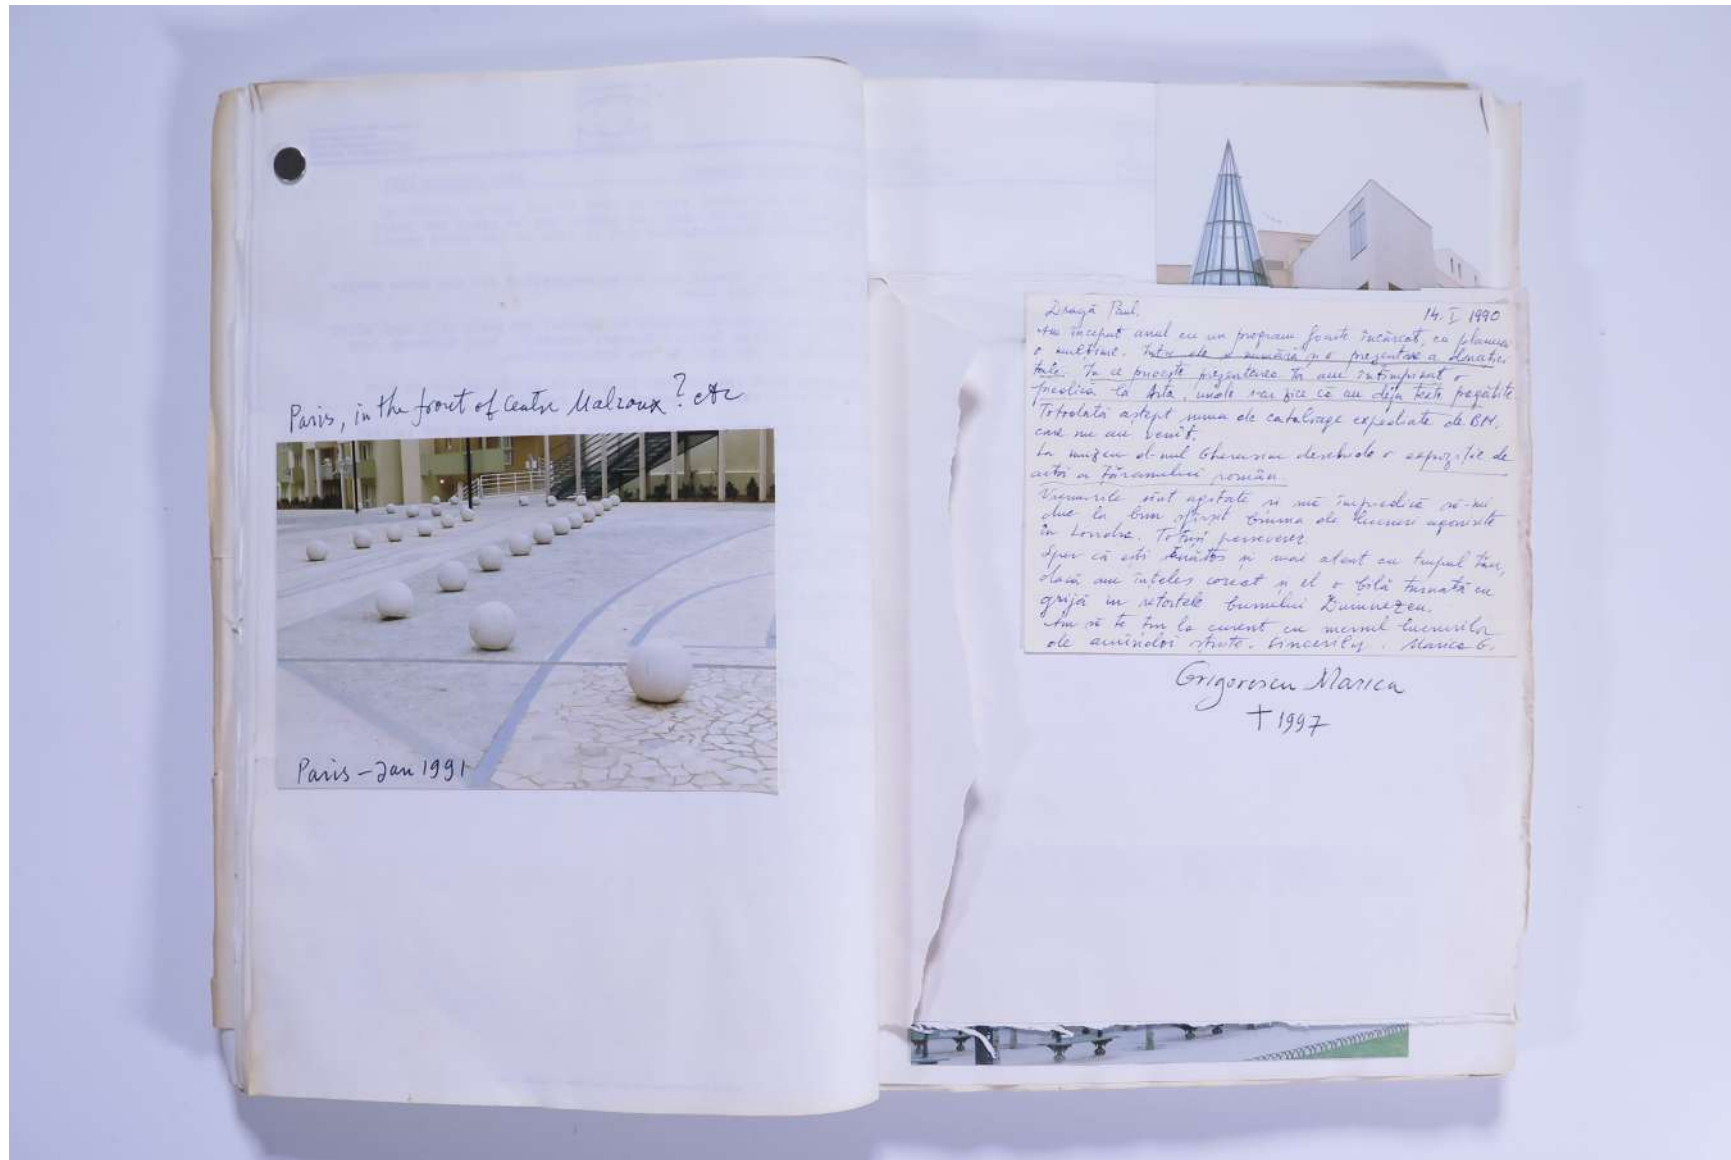 Paris, in the front of Centre Malraux? etc
Paris – Jan 1991
Dragă Paul. 14. I 1990
Am început anul cu un program foarte încărcat, cu planuri
o mulțime. Între ele se numără și o prezentare a donației
tale. În ce privește prezentarea ta am întîmpinat o
piedică la Arta, unde
 că au deja texte pregătite.
Totodată aștept numa de cataloage expediate de BM,
care nu au venit.
La muzeu d-nul Ghera deschide o expoziție de
artă a Țăranului român.
Vremurile sînt agitate și mă împiedică să-mi
duc la bun sfîrșit de lucruri agonisite
în Londra. Totuși perseverez.
Sper că ești sănătos și mai atent cu trupul tău,
dacă am înțeles corect și el o bilă turnată cu
grijă în retortele bunului Dumnezeu.
Am să te țin la curent cu mersul lucrurilor
de amîndoi știute. Sincerily. Marica G.
Grigorescu Marica
† 1997